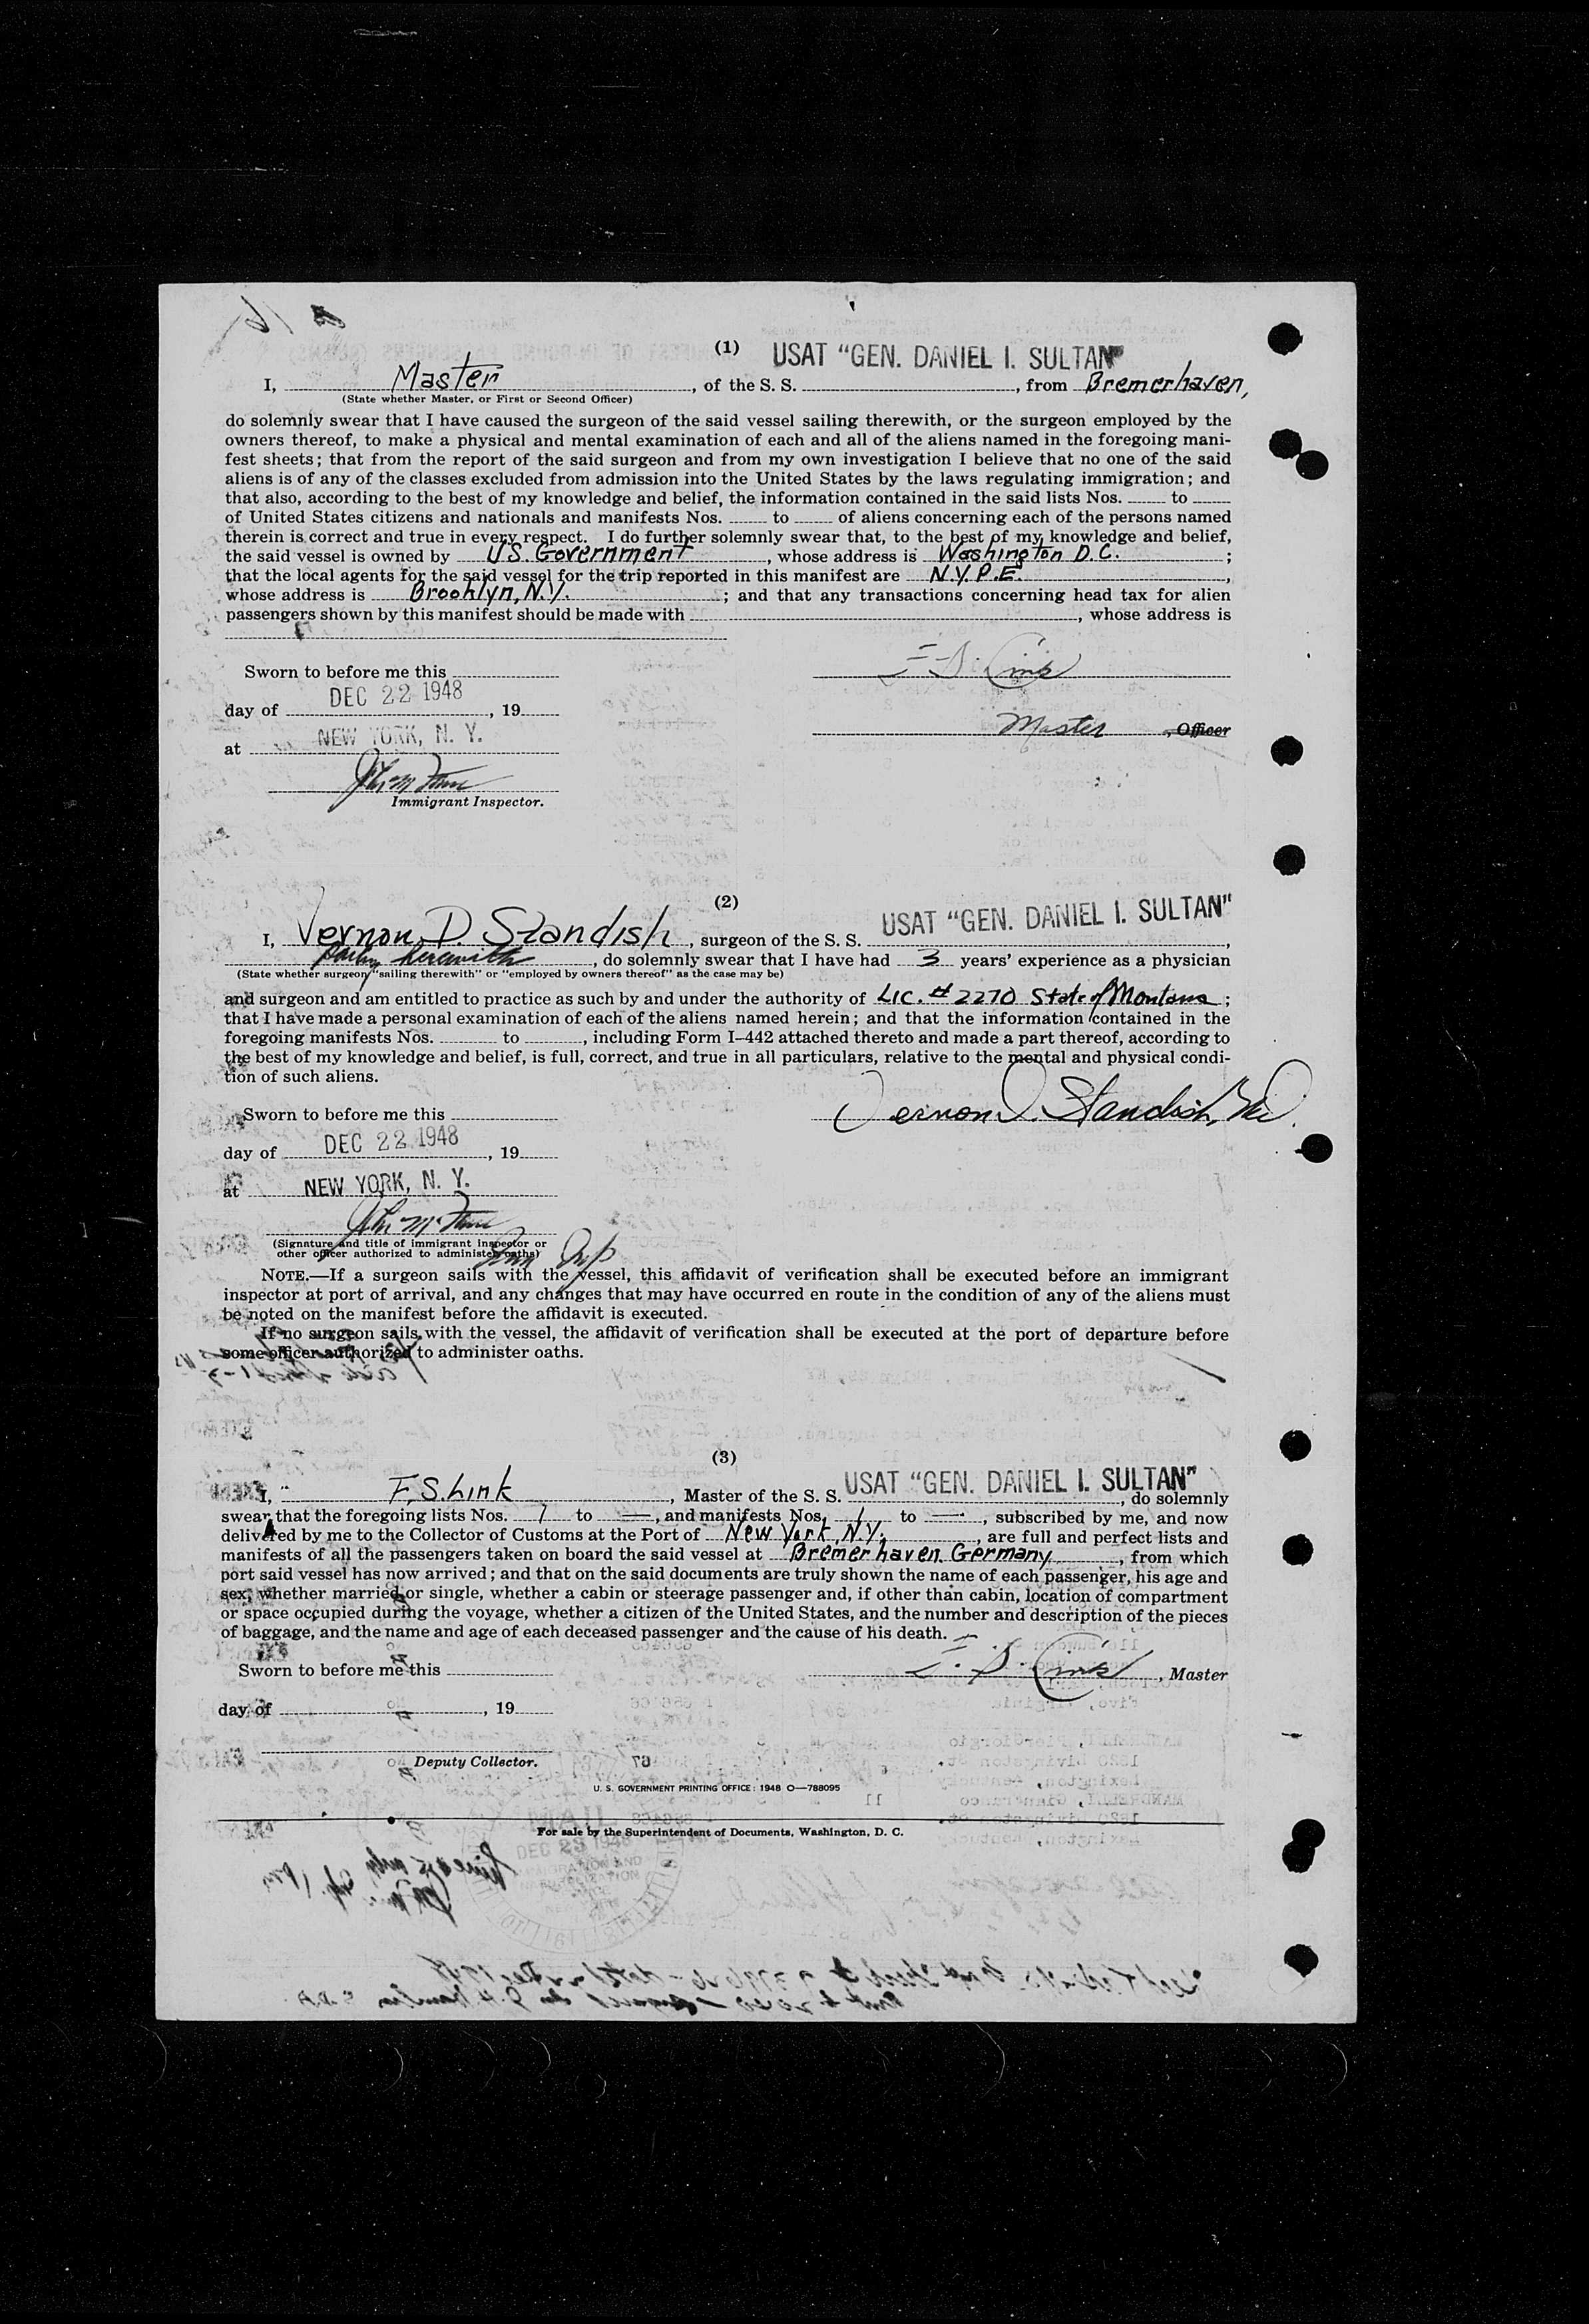 (1)
USAT "GEN. DANIEL I. SULTAN"
I, Master, of the S. S. , from Bremerhaven,
(State whether Master, or First or Second Officer)
do solemnly swear that I have caused the surgeon of the said vessel sailing therewith, or the surgeon employed by the
owners thereof, to make a physical and mental examination of each and all of the aliens named in the foregoing mani-
fest sheets; that from the report of the said surgeon and from my own investigation I believe that no one of the said
aliens is of any of the classes excluded from admission into the United States by the laws regulating immigration; and
that also, according to the best of my knowledge and belief, the information contained in the said lists Nos. to
of United States citizens and nationals and manifests Nos. to of aliens concerning each of the persons named
therein is correct and true in every respect. I do further solemnly swear that, to the best of my knowledge and belief,
the said vessel is owned by U.S. Government, whose address is Washington D.C. ;
that the local agents for the said vessel for the trip reported in this manifest are N.Y.P.E. ,
whose address is Brooklyn, N.Y. ; and that any transactions concerning head tax for alien
passengers shown by this manifest should be made with , whose address is
Sworn to before me this
DEC 22 1948
day of , 19
Master, Officer
NEW YORK, N. Y.
at
Immigrant Inspector.
(2)
USAT "GEN. DANIEL I. SULTAN"
I, Vernon D. Standish, surgeon of the S. S. ,
sailing therewith, do solemnly swear that I have had 3 years' experience as a physician
(State whether surgeon "sailing therewith" or "employed by owners thereof" as the case may be)
and surgeon and am entitled to practice as such by and under the authority of Lic. # 2270 State of Montana ;
that I have made a personal examination of each of the aliens named herein; and that the information contained in the
foregoing manifests Nos. to , including Form I-442 attached thereto and made a part thereof, according to
the best of my knowledge and belief, is full, correct, and true in all particulars, relative to the mental and physical condi-
tion of such aliens.
Sworn to before me this
Vernon D. Standish, MD.
DEC 22 1948
day of , 19
NEW YORK, N. Y.
at
(Signature and title of immigrant inspector or
other officer authorized to administer oaths)
NOTE.—If a surgeon sails with the vessel, this affidavit of verification shall be executed before an immigrant
inspector at port of arrival, and any changes that may have occurred en route in the condition of any of the aliens must
be noted on the manifest before the affidavit is executed.
If no surgeon sails with the vessel, the affidavit of verification shall be executed at the port of departure before
some officer authorized to administer oaths.
(3)
USAT "GEN. DANIEL I. SULTAN"
I, F. S. Link, Master of the S. S. , do solemnly
swear that the foregoing lists Nos. 1 to —, and manifests Nos. 1 to —, subscribed by me, and now
delivered by me to the Collector of Customs at the Port of New York, N.Y. , are full and perfect lists and
manifests of all the passengers taken on board the said vessel at Bremerhaven Germany, from which
port said vessel has now arrived; and that on the said documents are truly shown the name of each passenger, his age and
sex, whether married or single, whether a cabin or steerage passenger and, if other than cabin, location of compartment
or space occupied during the voyage, whether a citizen of the United States, and the number and description of the pieces
of baggage, and the name and age of each deceased passenger and the cause of his death.
Sworn to before me this
F. S. Link, Master
day of , 19
Deputy Collector.
U. S. GOVERNMENT PRINTING OFFICE: 1948 O—788095
For sale by the Superintendent of Documents, Washington, D. C.
DEC 23 1948